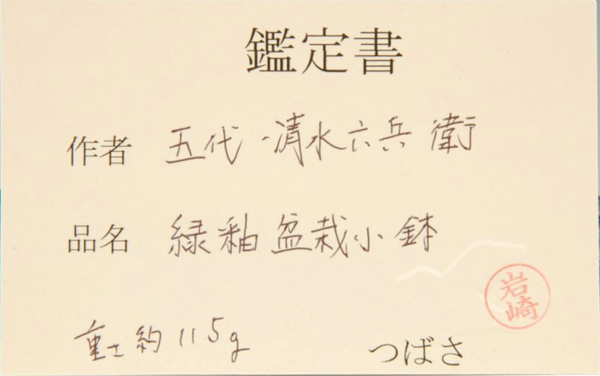 鑑定書
作者 五代・清水六兵衛
品名 緑釉盆栽小鉢
重さ約115g つばさ
岩崎